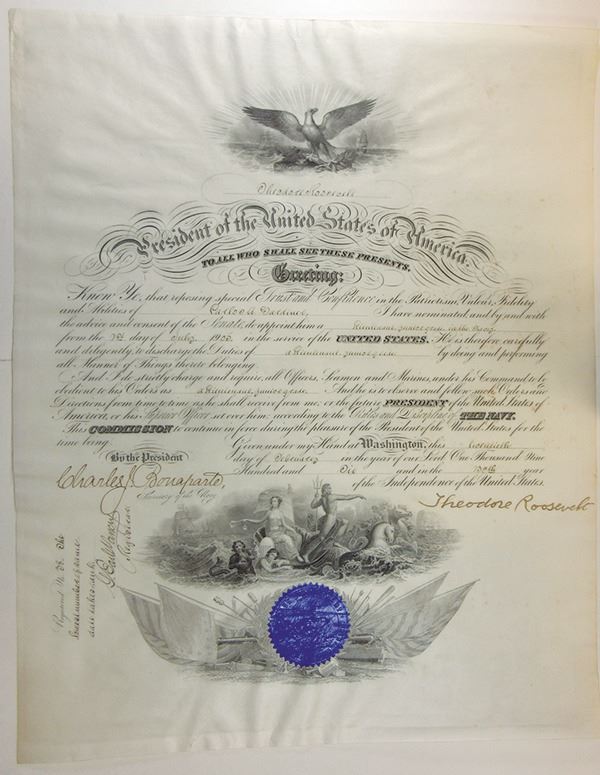 Theodore Roosevelt
President of the United States of America.
TO ALL WHO SHALL SEE THESE PRESENTS,
Greeting:
Know Ye, that reposing special Trust and Confidence in the Patriotism, Valour, Fidelity
and Abilities of I have nominated and by and with
the advice and consent of the Senate do appoint him a
from the day of July in the service of the UNITED STATES. He is therefore carefully
and diligently to discharge the Duties of a Lieutenant, junior grade by doing and performing
all Manner of Things thereto belonging.
And I do strictly charge and require, all Officers, Seamen and Marines, under his Command to be
obedient to his Orders as a Lieutenant, junior grade And he is to observe and follow such Orders and
Directions from time to time as he shall receive from me, or the future PRESIDENT of the United States of
America, or his Superior Officer set over him, according to the Rules and Discipline of THE NAVY.
This COMMISSION to continue in force during the pleasure of the President of the United States for the
time being.
Given under my Hand at Washington, this twentieth
day of in the year of our Lord One Thousand Nine
Hundred and Six and in the year
of the Independence of the United States.
By the President
Charles J. Bonaparte,
Secretary of the Navy
Theodore Roosevelt
Registered No.